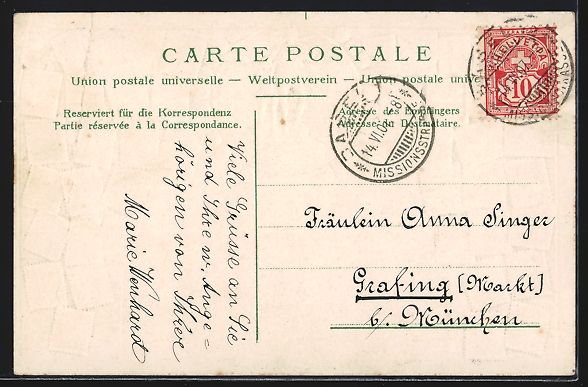 CARTE POSTALE
Union postale universelle — Weltpostverein — Union postale unive
Reserviert für die Korrespondenz
Partie réservée à la Correspondance.
Adresse des Empfängers
Adresse du Destinataire.
MISSIONSSTR.
14.VI.0
10
Fräulein Anna Singer
Grafing [Markt]
b/. München
Viele Grüsse an Sie
und Ihre w. Ange=
hörigen von Ihrer
Marie